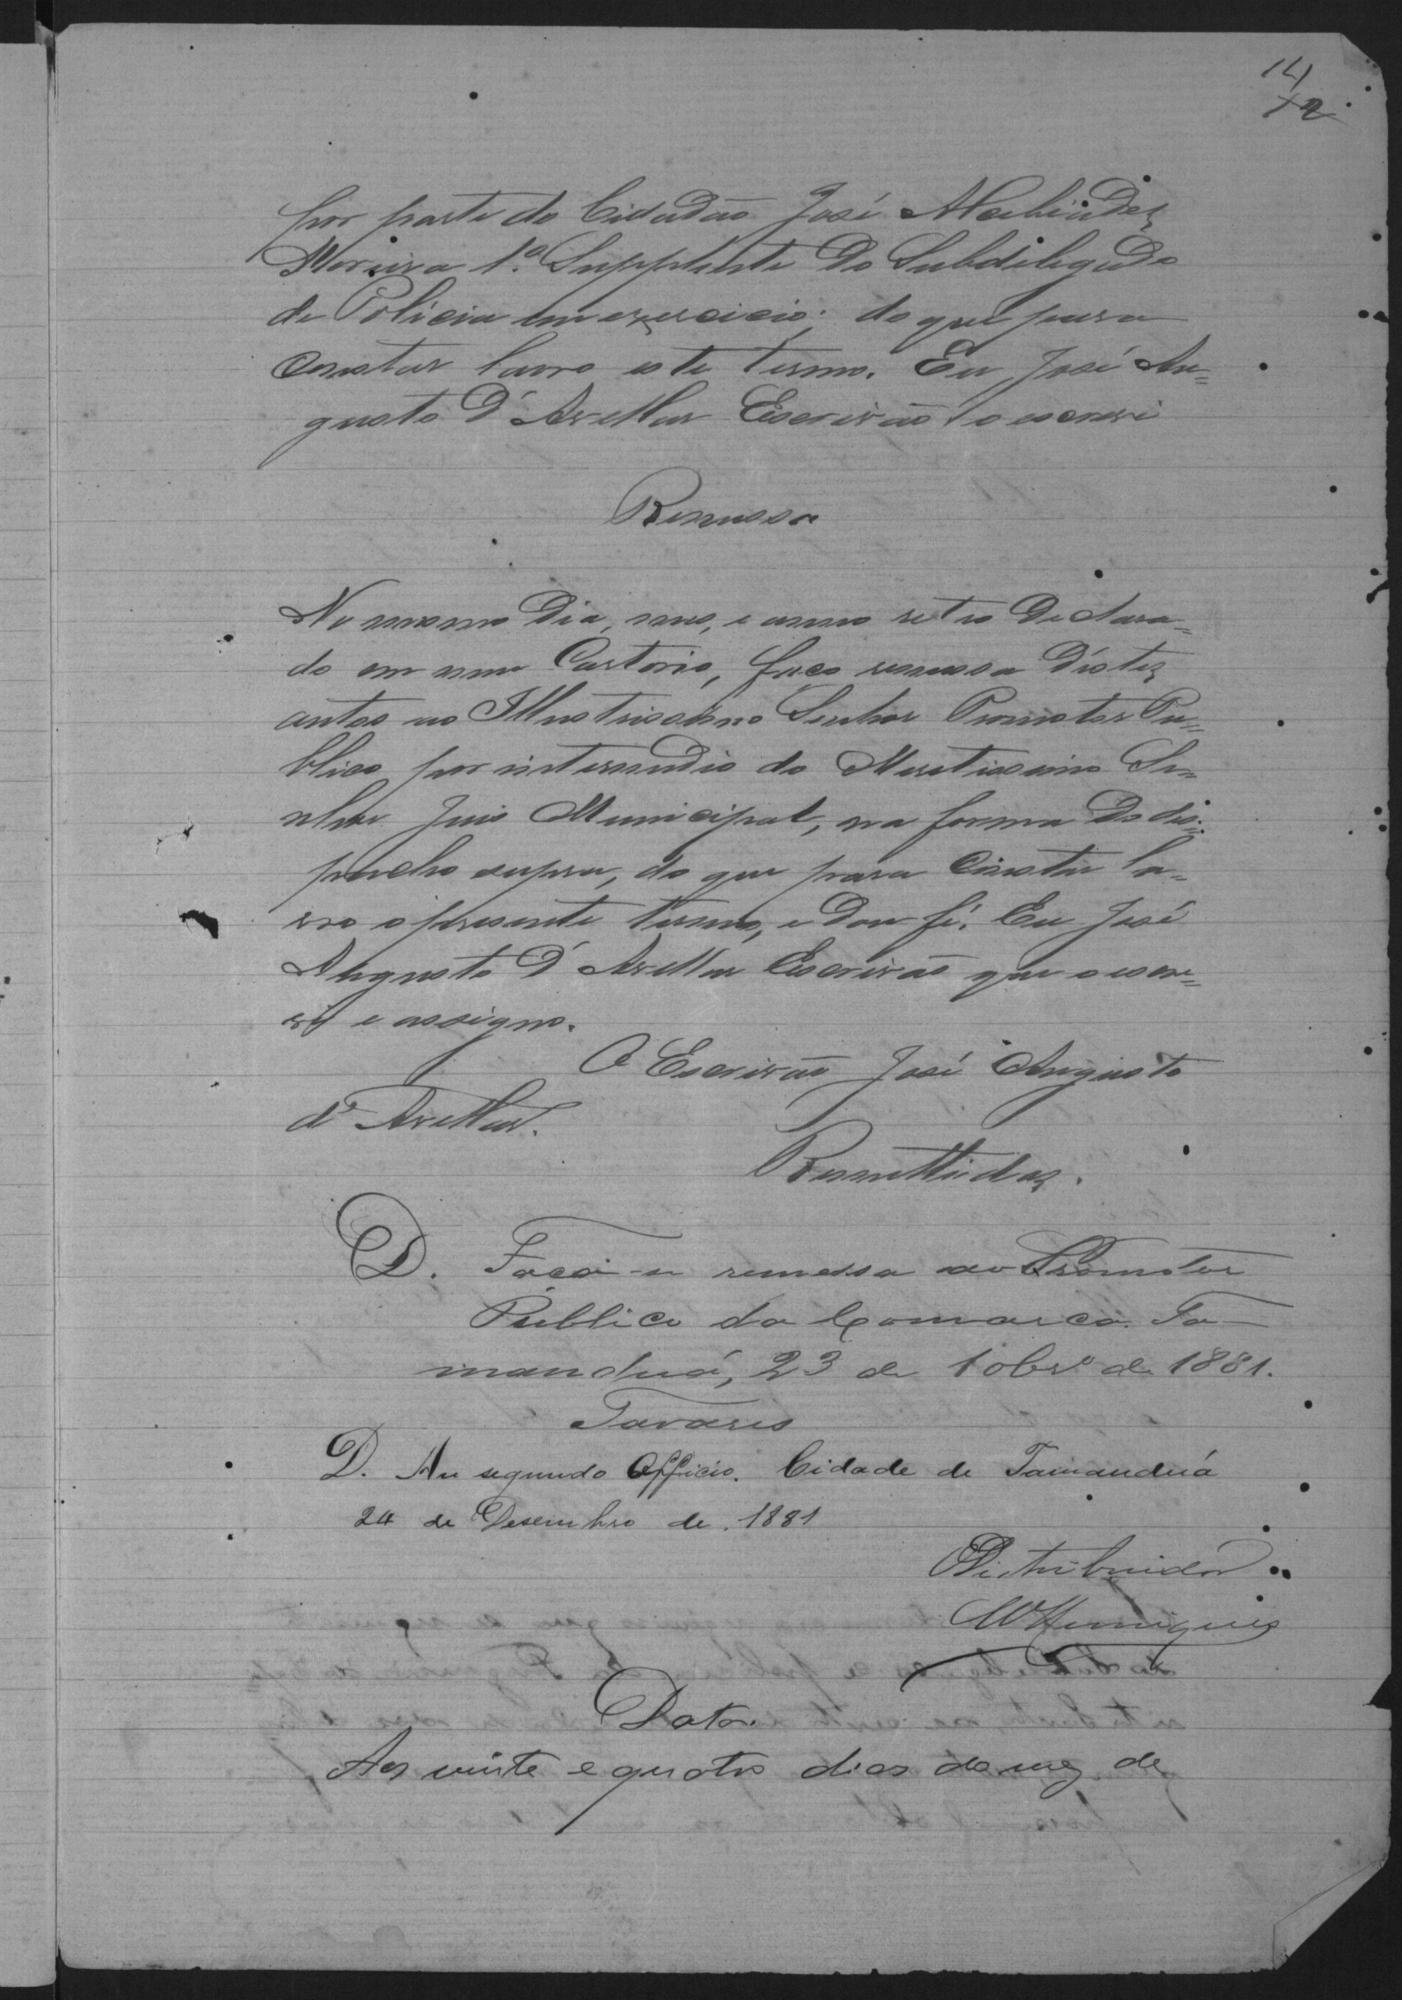 14
12
por parte do Cidadão José Malaida
Moreira 1º Supplente do Subdelegado
de Policia em exercicio; do que para
constar lavro este termo. Eu, José Au=
gusto D'Avellar Escrivão o escrevi
Remessa
No mesmo dia, mes, e anno retro declara=
do em meu Cartorio, faço remessa d'estes
autos ao Illustrissimo Senhor Promotor Pu=
blico por intermedio do Meretissimo Se=
nhor Juis Municipal, na forma do des=
pacho supra, do que para constar la=
vro o presente termo, e dou fé. Eu José
Augusto D'Avellar Escrivão que o escre=
vi e assigno.
O Escrivão José Augusto
d'Avellar.
Remettidos.
D. Faça-se remessa ao Promotor
Publico da Comarca. Ta-
manduá, 23 de 10brº de 1881.
Tavares
D. Au segundo Officio. Cidade de Tamanduá
24 de Desembro de 1881
Distribuidor
Henriques
Data
Aos vinte e quatro dias do mez de